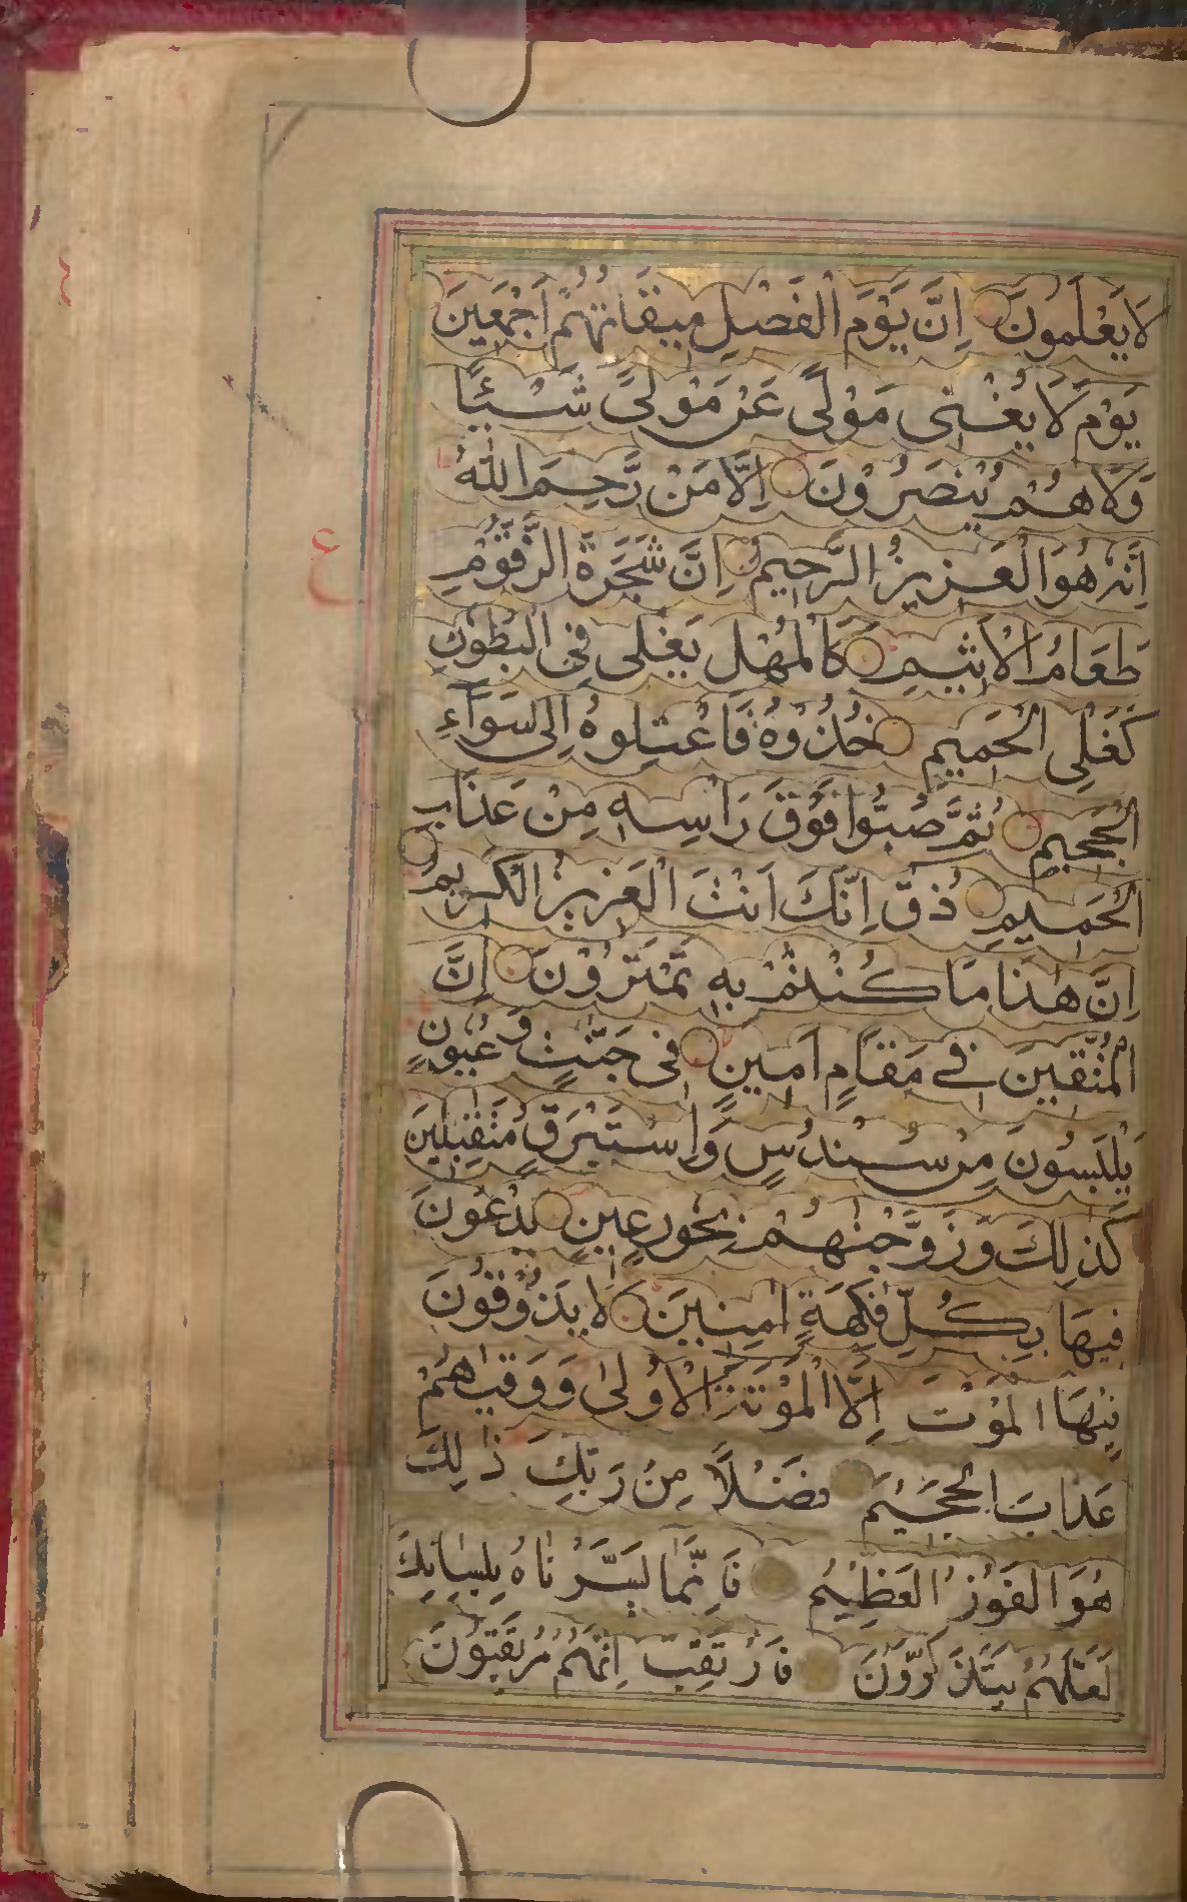 لَا يَعْلَمُونَ اِنَّ يَوْمَ الْفَصْلِ مِيقَاتُهُمْ اَجْمَعِينَ
يَوْمَ لَا يُغْنِى مَوْلًى عَنْ مَوْلًى شَيْئًا
وَّلَا هُمْ يُنْصَرُوْنَ اِلَّا مَنْ رَّحِمَ اللّٰهُ
اِنَّهٗ هُوَ الْعَزِيزُ الرَّحِيمُ اِنَّ شَجَرَةَ الزَّقُّوْمِ
طَعَامُ الْاَثِيْمِ كَالْمُهْلِ يَغْلِى فِى الْبُطُوْنِ
كَغَلْىِ الْحَمِيمِ خُذُوْهُ فَاعْتِلُوهُ اِلٰى سَوَآءِ
الْجَحِيمِ ثُمَّ صُبُّوا فَوْقَ رَاْسِهٖ مِنْ عَذَابِ
الْحَمِيمِ ذُقْ اِنَّكَ اَنْتَ الْعَزِيزُ الْكَرِيمُ
اِنَّ هٰذَا مَا كُنْتُمْ بِهٖ تَمْتَرُوْنَ اِنَّ
الْمُتَّقِينَ فِى مَقَامٍ اَمِينٍ فِى جَنّٰتٍ وَّعُيُوْنٍ
يَلْبَسُونَ مِنْ سُنْدُسٍ وَّاِسْتَبْرَقٍ مُتَقٰبِلِينَ
كَذٰلِكَ وَزَوَّجْنٰهُمْ بِحُورٍ عِينٍ يَدْعُونَ
فِيهَا بِكُلِّ فَاكِهَةٍ اٰمِنِينَ لَا يَذُوْقُونَ
فِيْهَا الْمَوْتَ اِلَّا الْمَوْتَةَ الْاُولٰى وَوَقٰيهُمْ
عَذَابَ الْجَحِيْمِ فَضْلًا مِنْ رَبِّكَ ذٰلِكَ
هُوَ الْفَوْزُ الْعَظِيْمُ فَاِنَّمَا يَسَّرْنَاهُ بِلِسَانِكَ
لَعَلَّهُمْ يَتَذَكَّرُوْنَ فَارْتَقِبْ اِنَّهُمْ مُرْتَقِبُوْنَ
ع